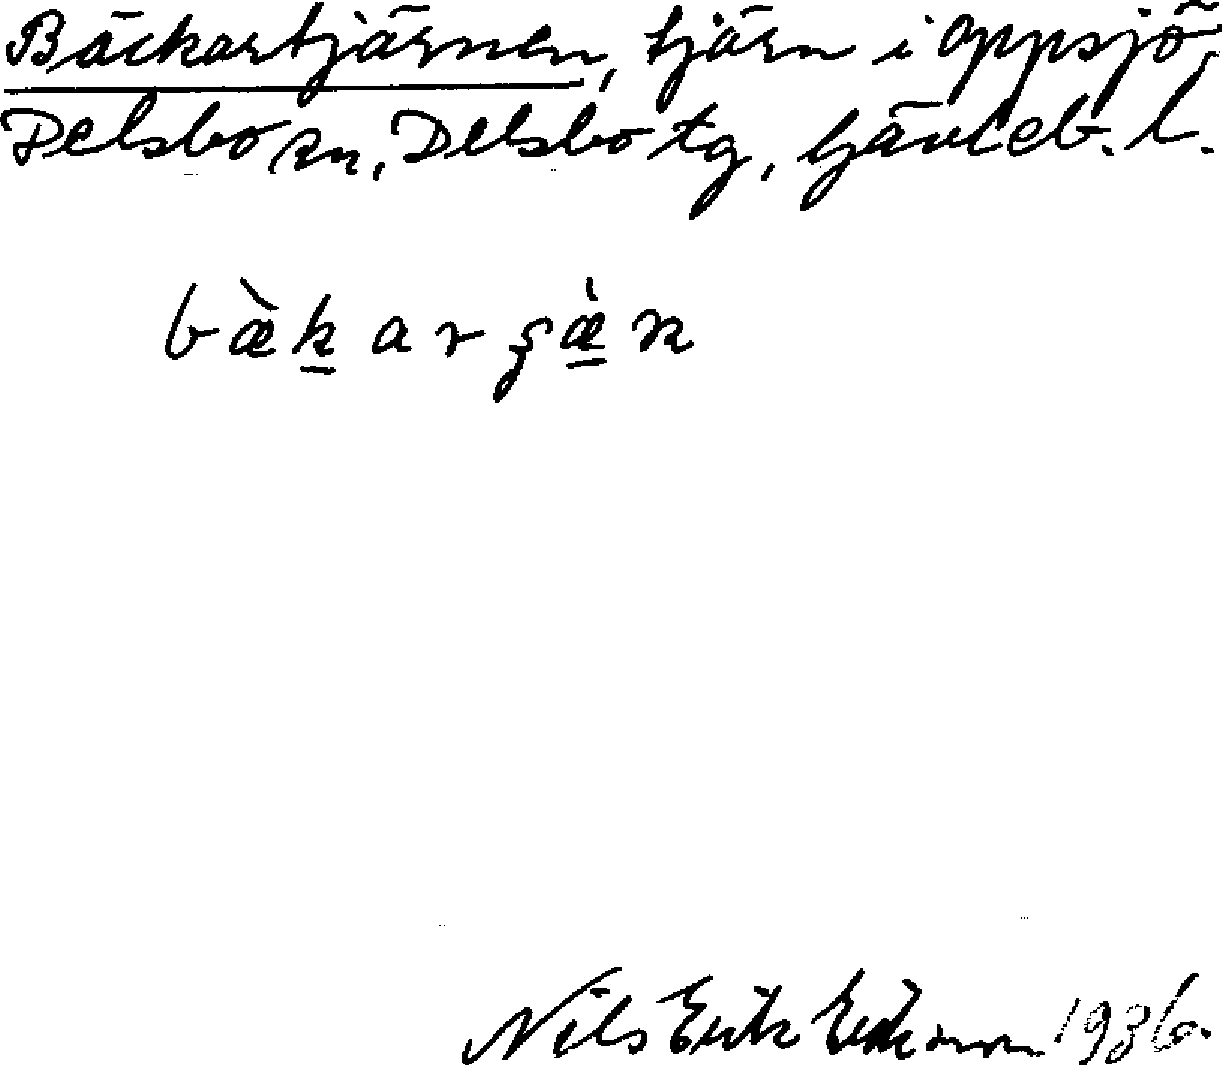 Bäckartjärnen, tjärn i Oppsjö,
Delsbo sn, Delsbo tg, Gävleb. l.
bæ̀k̲arʂæ̲̀n
Nils Erik Eriksson 1936.